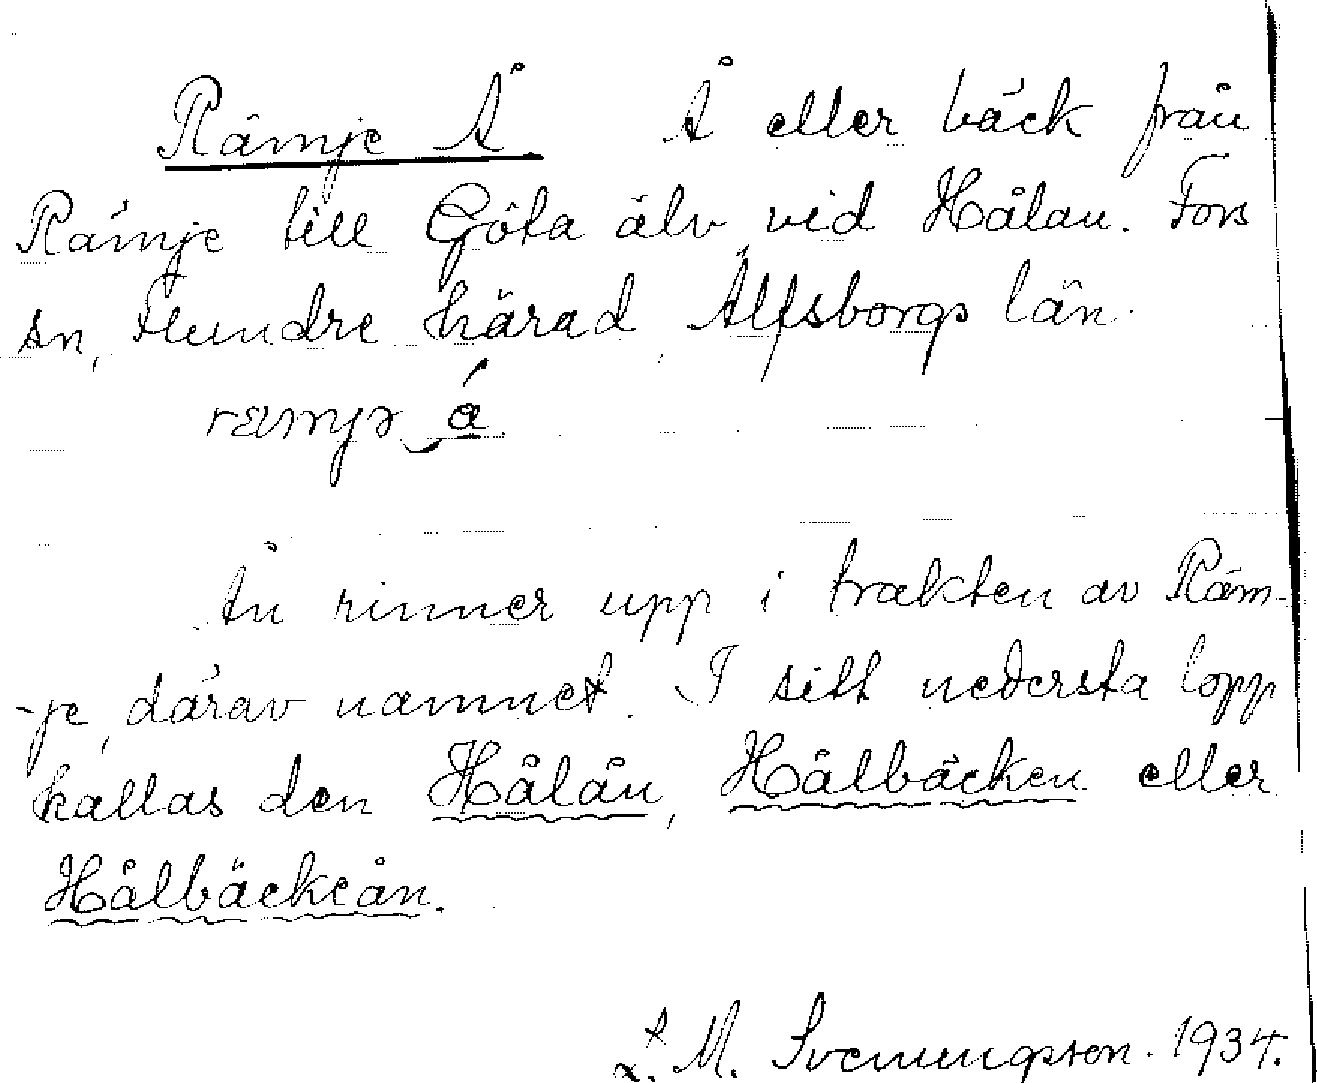 Rämje Å Å eller bäck från
Rämje till Göta älv vid Hålan. Fors
sn, Flundre härad, Älfsborgs län.
Ån rinner upp i trakten av Räm-
-je, därav namnet. I sitt nedersta lopp
kallas den Hålån, Hålbäcken eller
Hålbäckeån.
L. M. Svenungsson. 1934.